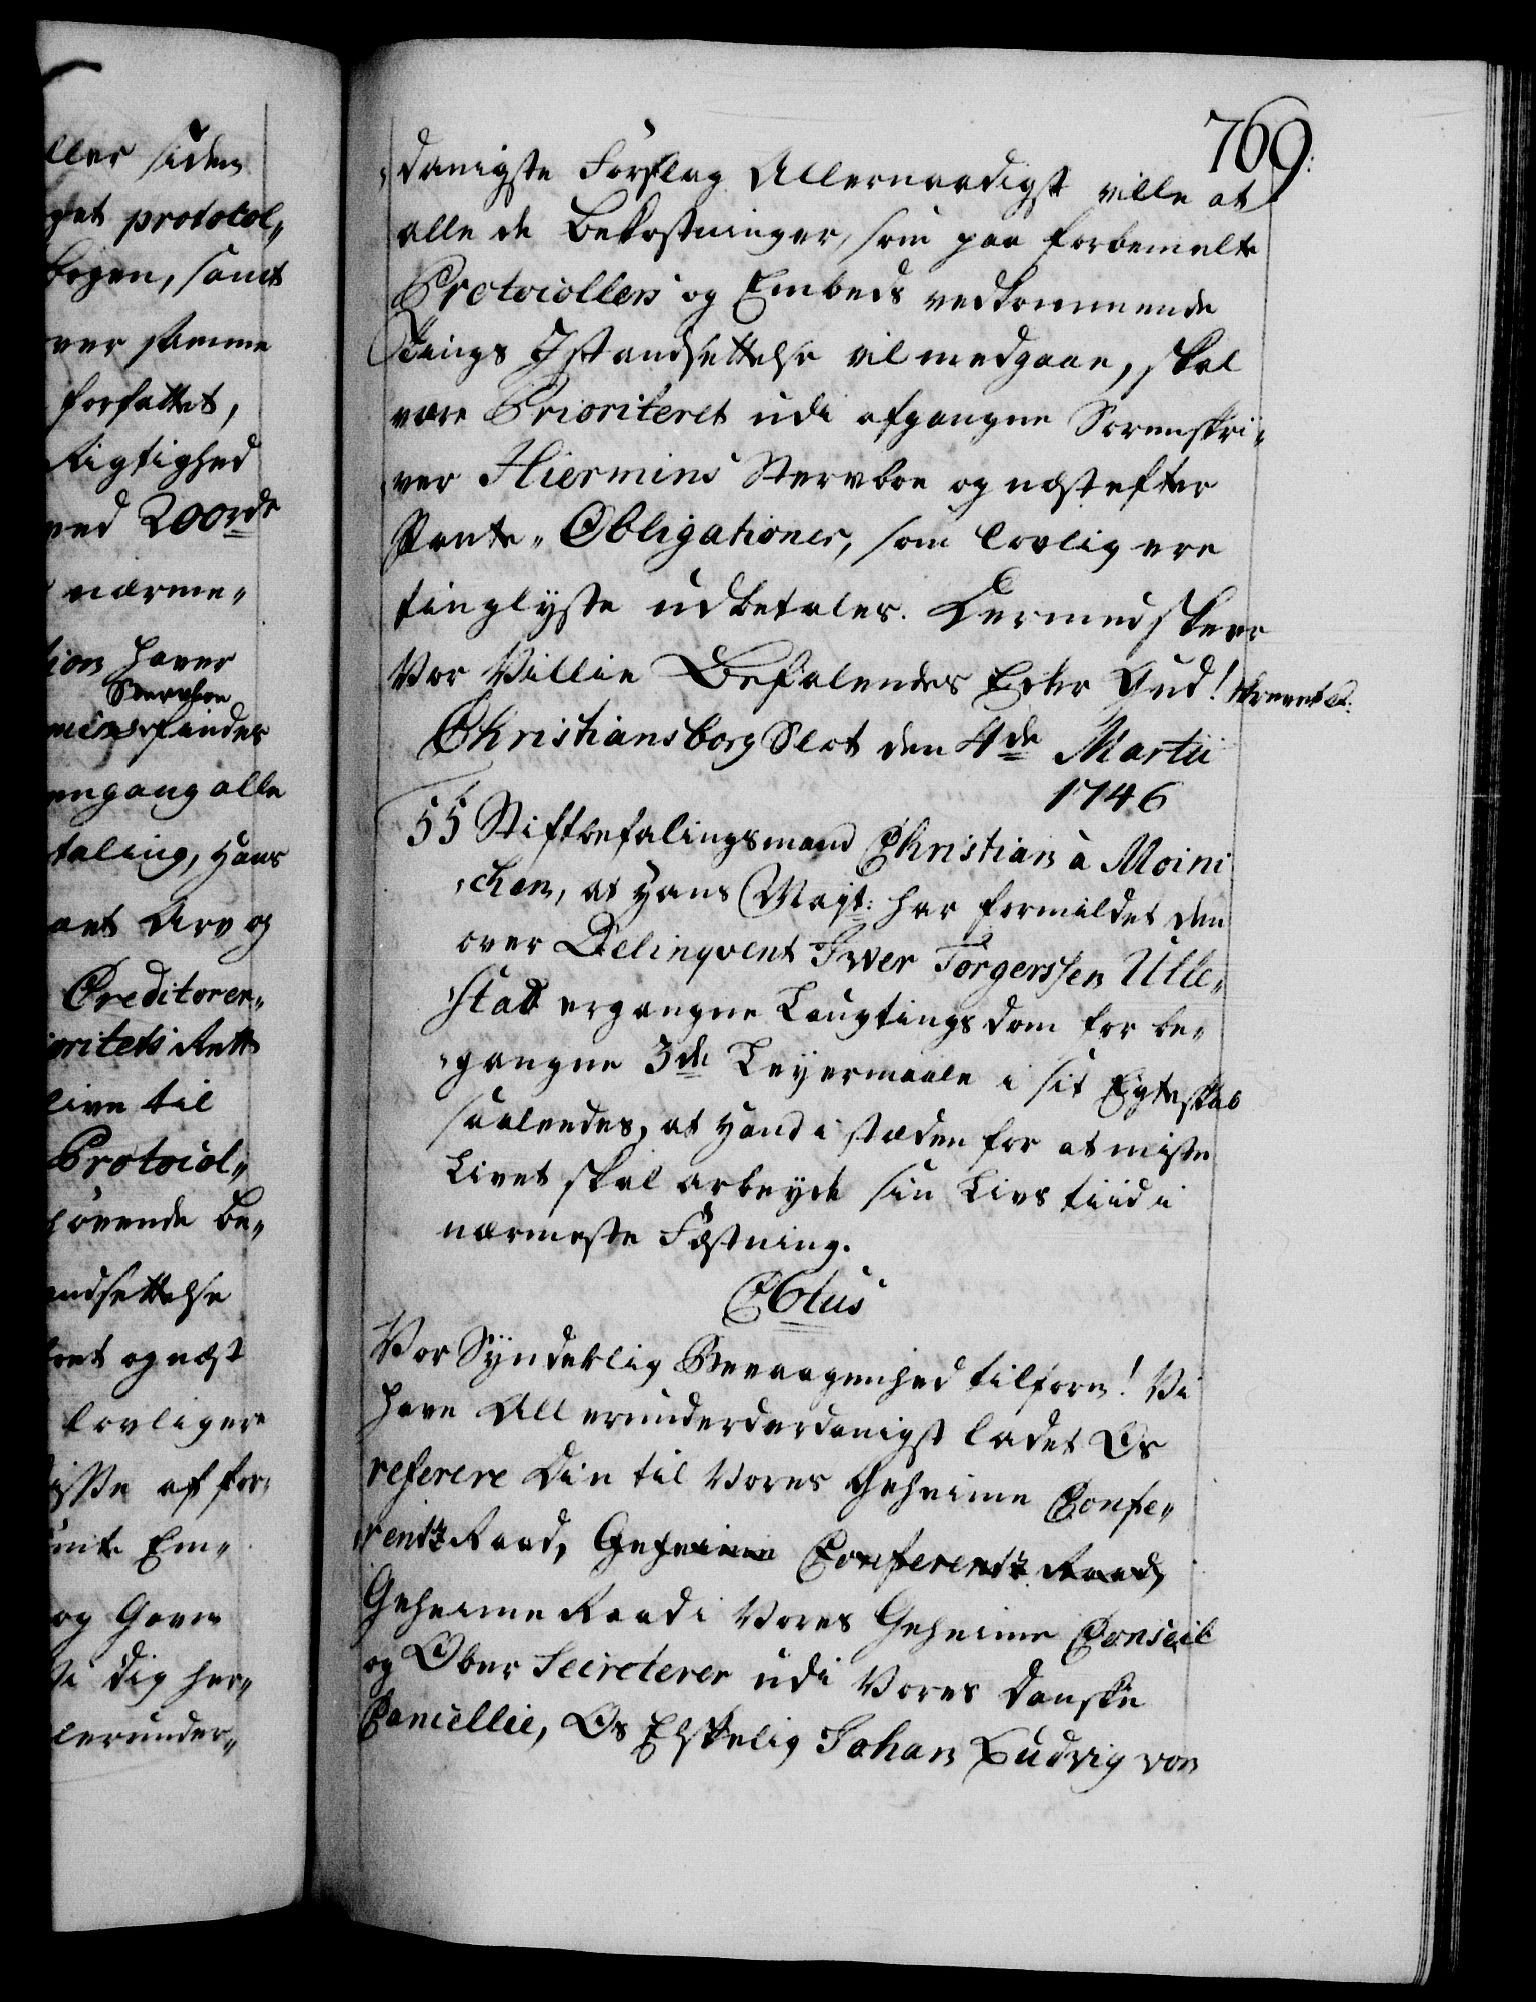 ller siden
get protocol„
bogen, samt
ver samme
forfattet,
Rigtighed
ved Woorde
nærme„
tion haver
Stervboe
mins findes
engang alle
taling, Hans
ant Arv og
Creditorer„
oritets Rett
live til
Protocol„
hørende be„
andsettelse
oret og næst
lovligere
iste af for„
Em„
og Gaven
Vi dig her„
lerunder„
769:
„danigste Forslag Allernaadigst ville at
alle de Bekostninger, som paa forbemelte
Protocollers og Embeds vedkommende
Tings Istandsettelse vil medgaae, skal
være Prioriteret udi afgangne Sorenskri„
„ver Hiermins Stervboe og næst efter
Pante„ Obligationer, som lovlig ere
tinglyste udbetales. Dermed skeer
Vor Villie Befalendes Eder Gud! Skrevet p:
Christiansborg Slot den 4de Martii
1746
55 Stiftbefalingsmand Christian à Moini
„chen, at Hans Mayt: har formildet den
over Delinqvent Iver Torgerssen Ulle„
„stad ergangne Laugtings dom for be„
„gangne 3de Leyermaale i sit Egteskab
saaledes, at Hand i stæden for at miste
Livet skal arbeyde sin Livs tiid i
nærmeste Fæstning.
CVtus
Vor Synderlig Bevaagenhed tilforn! Vi
have Allerunderderdanigst ladet Os
referere Din til Vores Geheime Confe„
„rentz Raad, Geheime Conferentz Raad,
Geheime Raad i Vores Geheime Conseil
og Ober Secreterer udi Vores danske
Cancellie, Os Elskelig Johan Ludvig von